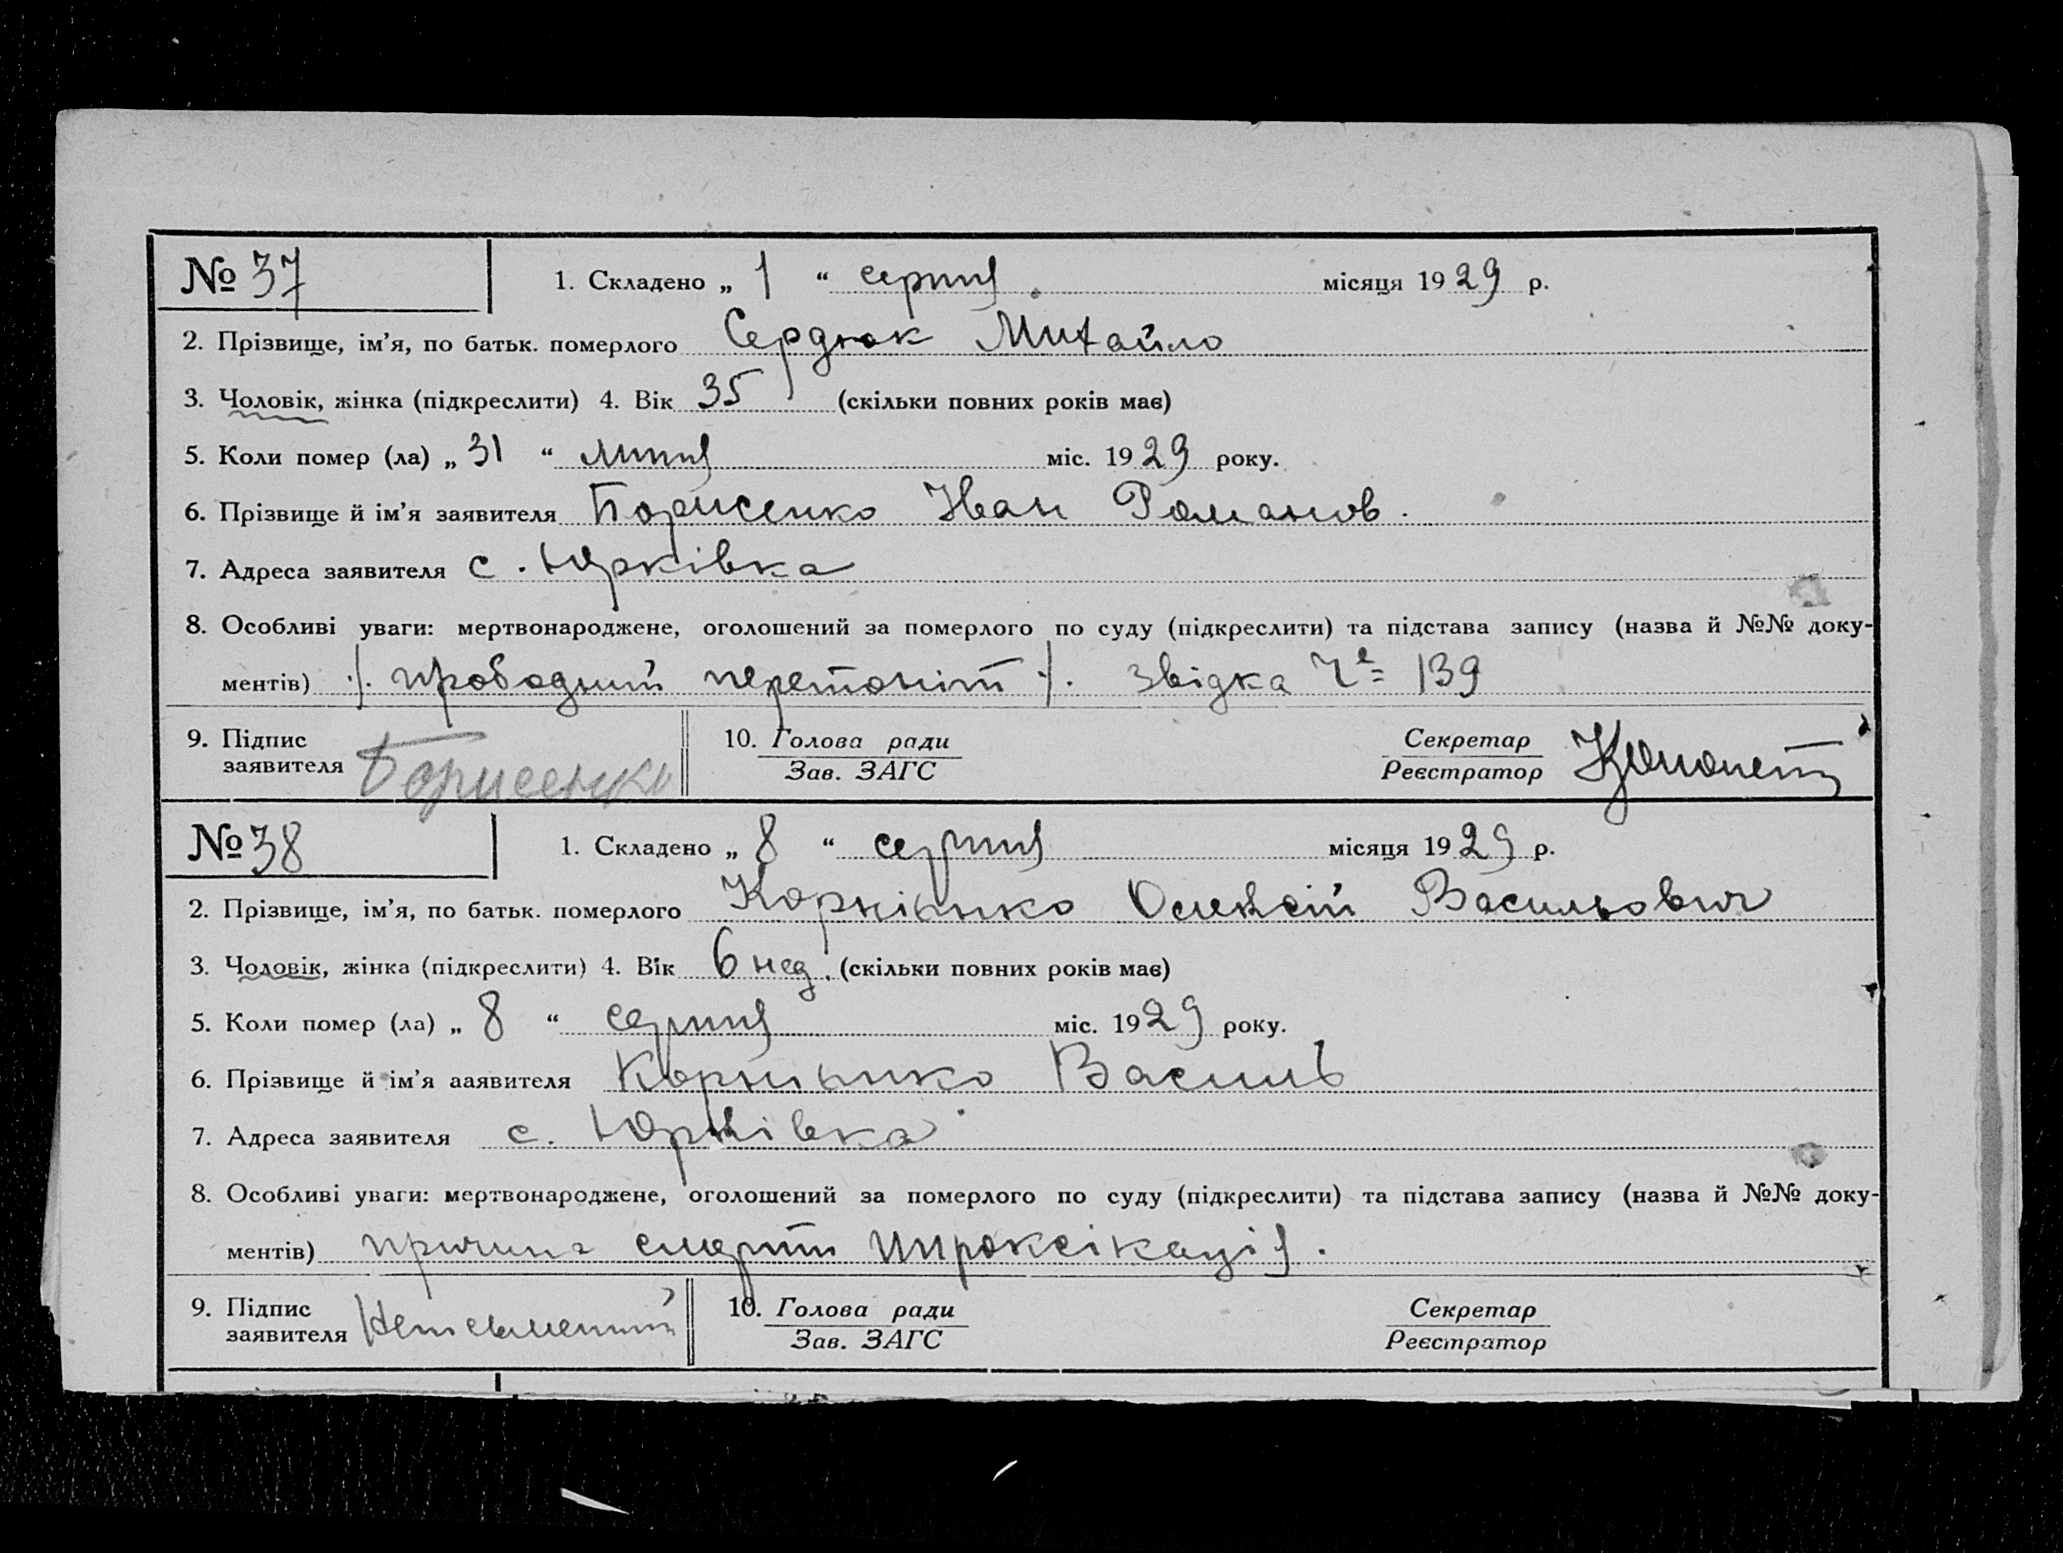 № 37 1. Складено „ 1 “ серпня місяця 1929 р.
2. Прізвище, ім’я, по батьк. померлого Сердюк Михайло
3. Чоловік, жінка (підкреслити) 4. Вік 35 (скільки повних років має)
5. Коли помер (ла) „ 31 “ липня міс. 1929 року.
6. Прізвище й ім’я заявителя Борисенко Іван Романов.
7. Адреса заявителя с. Юрківка
8. Особливі уваги: мертвонароджене, оголошений за померлого по суду (підкреслити) та підстава запису (назва й №№ доку-
ментів) ./. прободний перетоніт ./. Звідка Ч 139
9. Підпис 10. Голова ради Секретар
заявителя Борисенко Зав. ЗАГС Реєстратор
№ 38 1. Складено „ 8 “ серпня місяця 1929 р.
2. Прізвище, ім’я, по батьк. померлого Олексій Васильович
3. Чоловік, жінка (підкреслити) 4. Вік 6 нед. (скільки повних років має)
5. Коли помер (ла) „ 8 “ серпня міс. 1929 року.
6. Прізвище й ім’я ааявителя Василь
7. Адреса заявителя с. Юрківка
8. Особливі уваги: мертвонароджене, оголошений за померлого по суду (підкреслити) та підстава запису (назва й №№ доку-
ментів) причина смерти
9. Підпис 10. Голова ради Секретар
заявителя Неписьменний Зав. ЗАГС Реєстратор